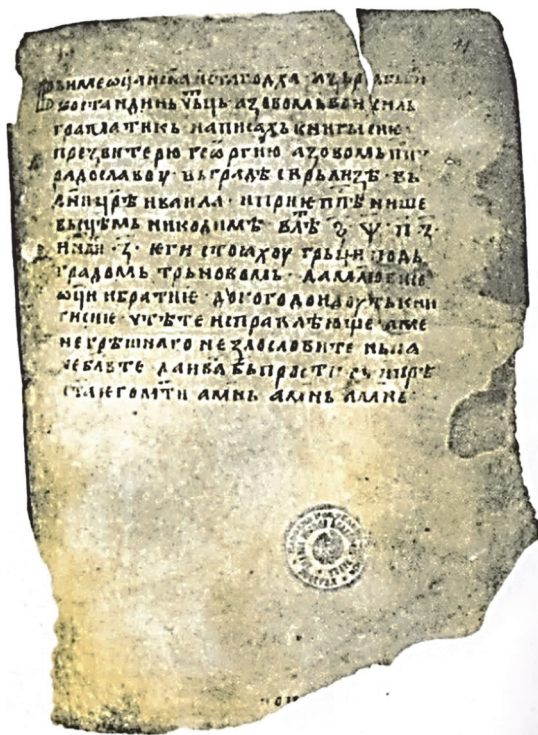 Въ име ѡца и сна и стаго дха азъ рабь бжи
Костандинь чтьць а зовомь Воисиль
граматикь написахъ книгы сиѥ
презвитерю геѡргию а зовомь пп
радославоу въ градѣ сврьлизѣ въ
дни црѣ иваила и при ѥппѣ нише
вьсцѣмь никодимѣ влѣ ҂ѕ ѱ п з
инди з ѥги стоꙗхоу грьци подь
градомь трьновомь да молю ви сиѥ
ѡци и братиѥ д кого доидоуть кни
ги сиѥ чтѣте исправлѣюще а ме
не грѣшнаго не злословите нь па
че блвте да и ва бь прости сь мирѣ
стаѥ го мти амнь амнь амнь